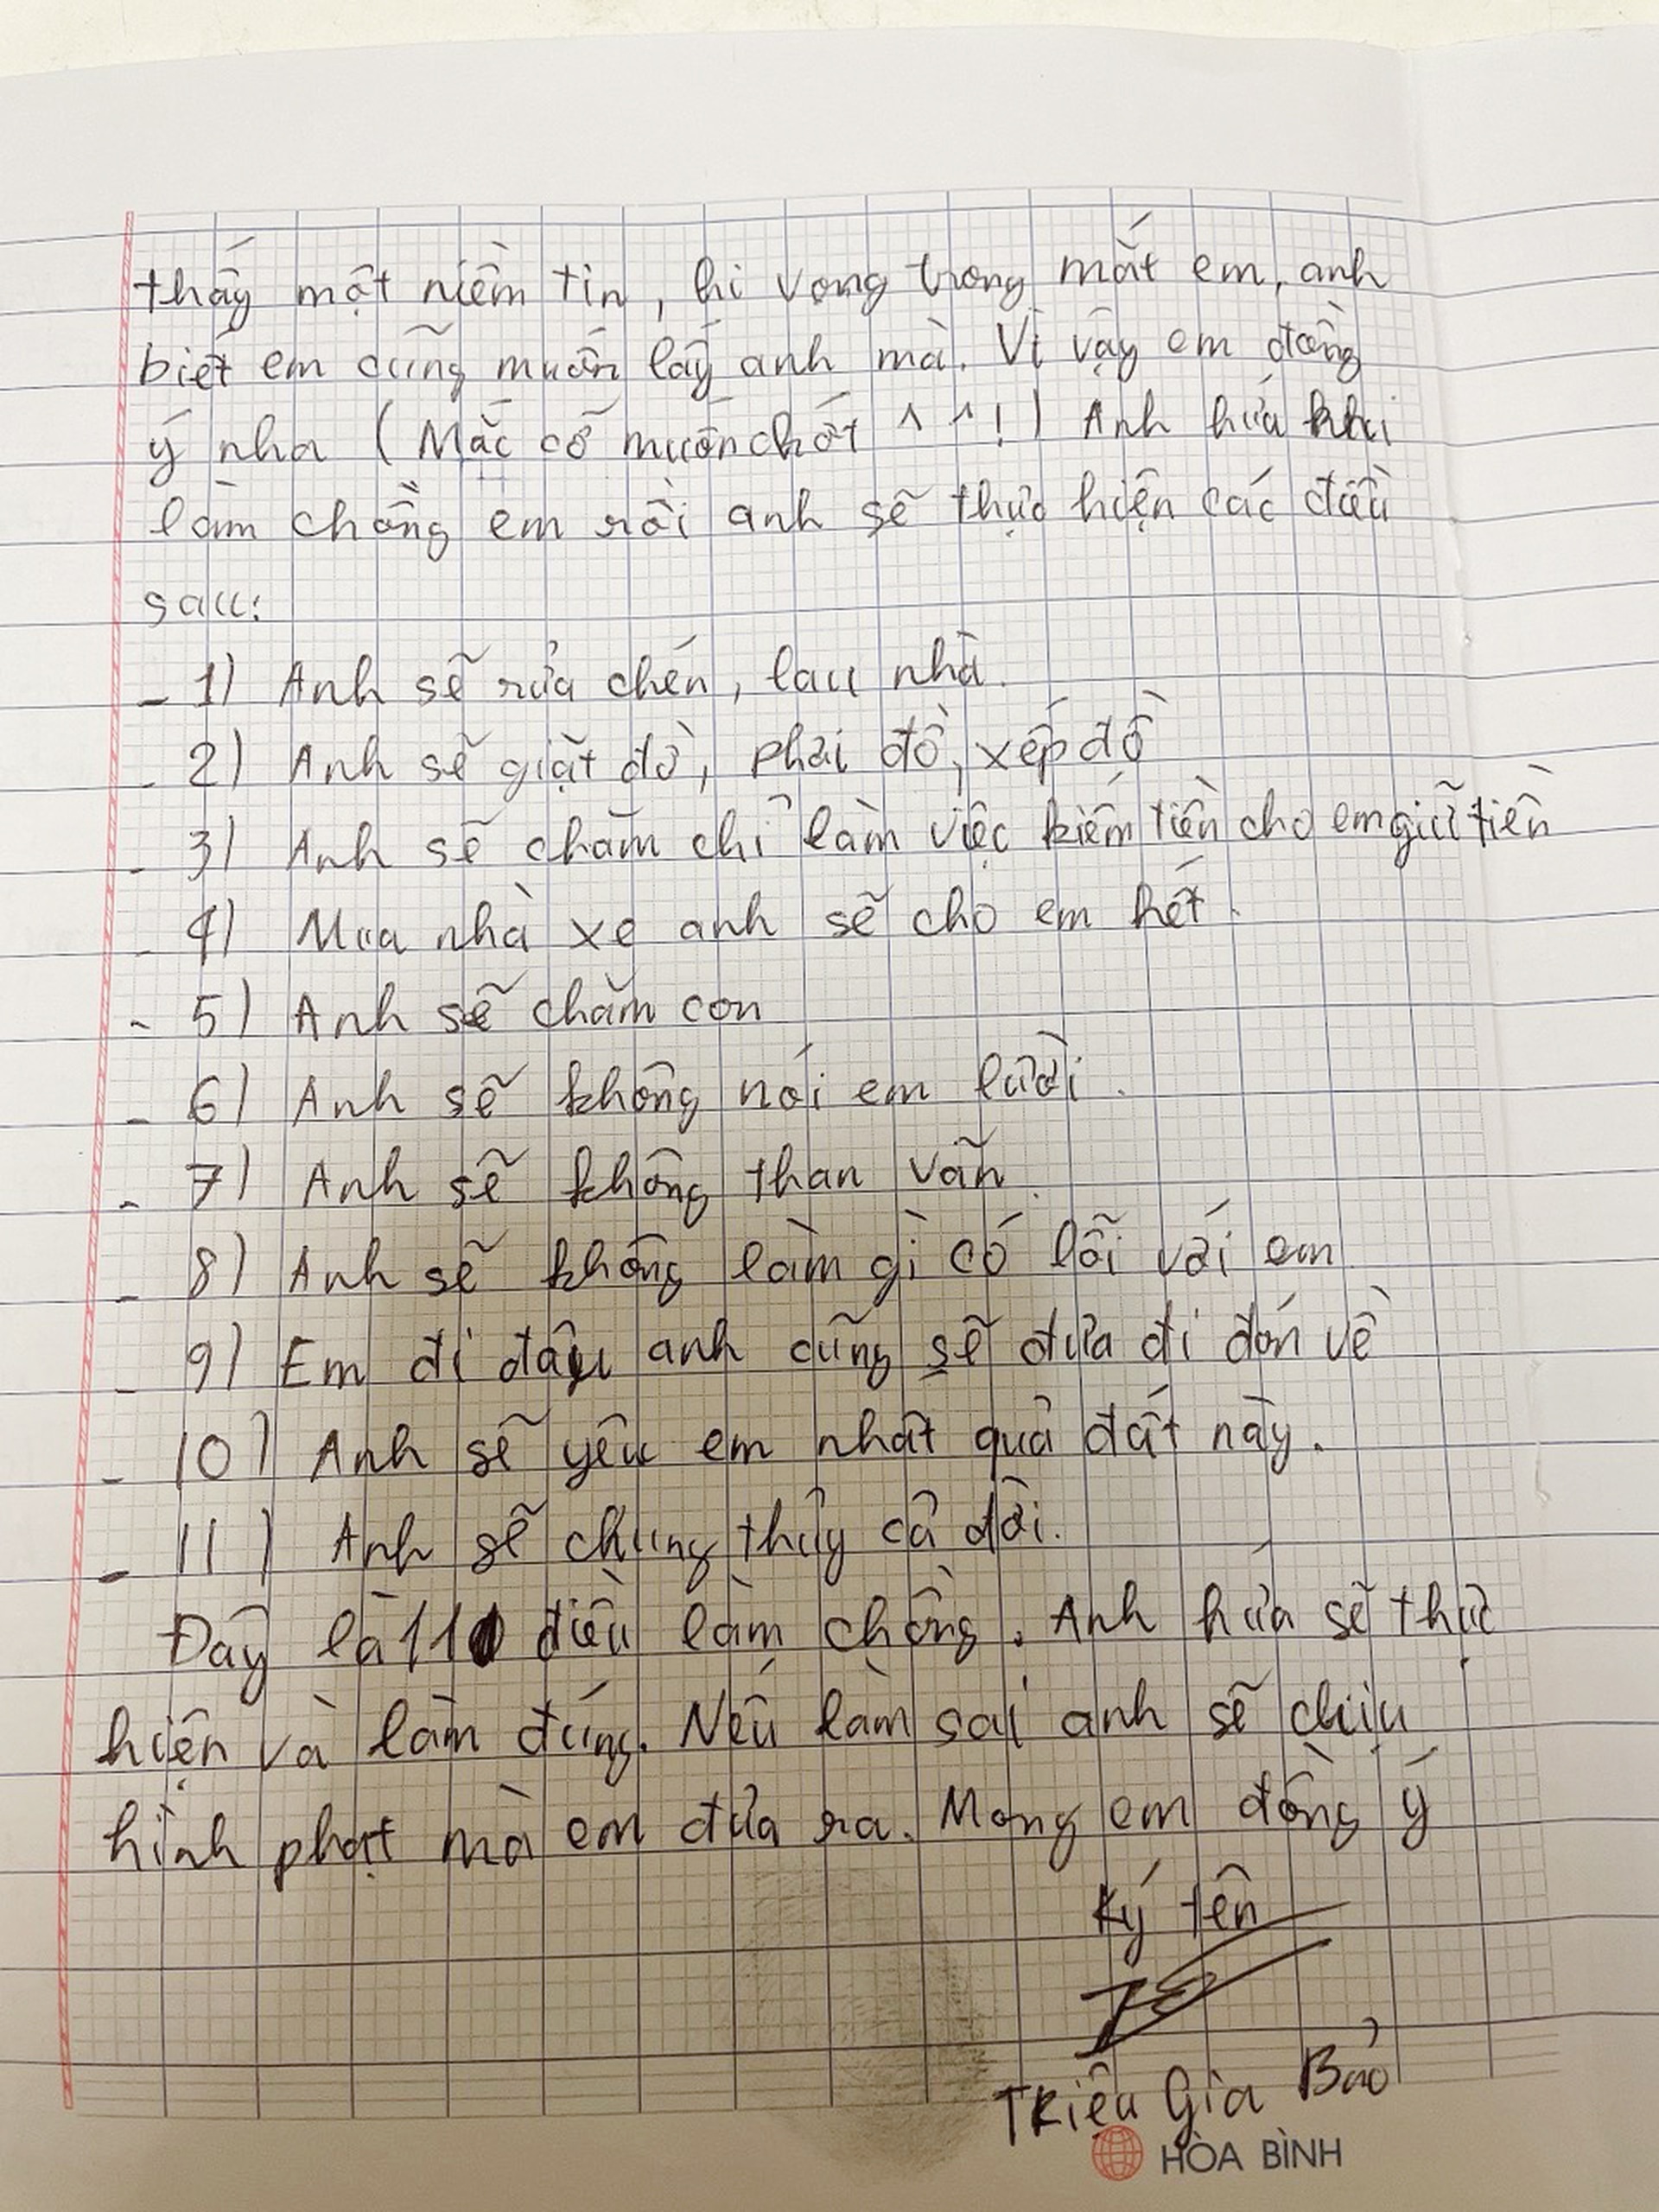 thấy một niềm tin, hi vọng trong mắt em, anh
biết em cũng muốn lấy anh mà. Vì vậy em đồng
ý nha (Mắc cỡ muốn chớt ^ ^ !) Anh hứa khi
làm chồng em rồi anh sẽ thực hiện các điều
sau:
- 1) Anh sẽ rửa chén, lau nhà.
- 2) Anh sẽ giặt đồ, phơi đồ, xếp đồ
- 3) Anh sẽ chăm chỉ làm việc kiếm tiền cho em giữ tiền
- 4) Mua nhà xe anh sẽ cho em hết.
- 5) Anh sẽ chăm con
- 6) Anh sẽ không nói em lười.
- 7) Anh sẽ không than vãn.
- 8) Anh sẽ không làm gì có lỗi với em
- 9) Em đi đâu anh cũng sẽ đưa đi đón về
- 10) Anh sẽ yêu em nhất quả đất này.
- 11) Anh sẽ chung thủy cả đời.
Đây là 11 điều làm chồng. Anh hứa sẽ thực
hiện và làm đúng. Nếu làm sai anh sẽ chịu
hình phạt mà em đưa ra. Mong em đồng ý
Ký tên
Triệu Gia Bảo
HÒA BÌNH